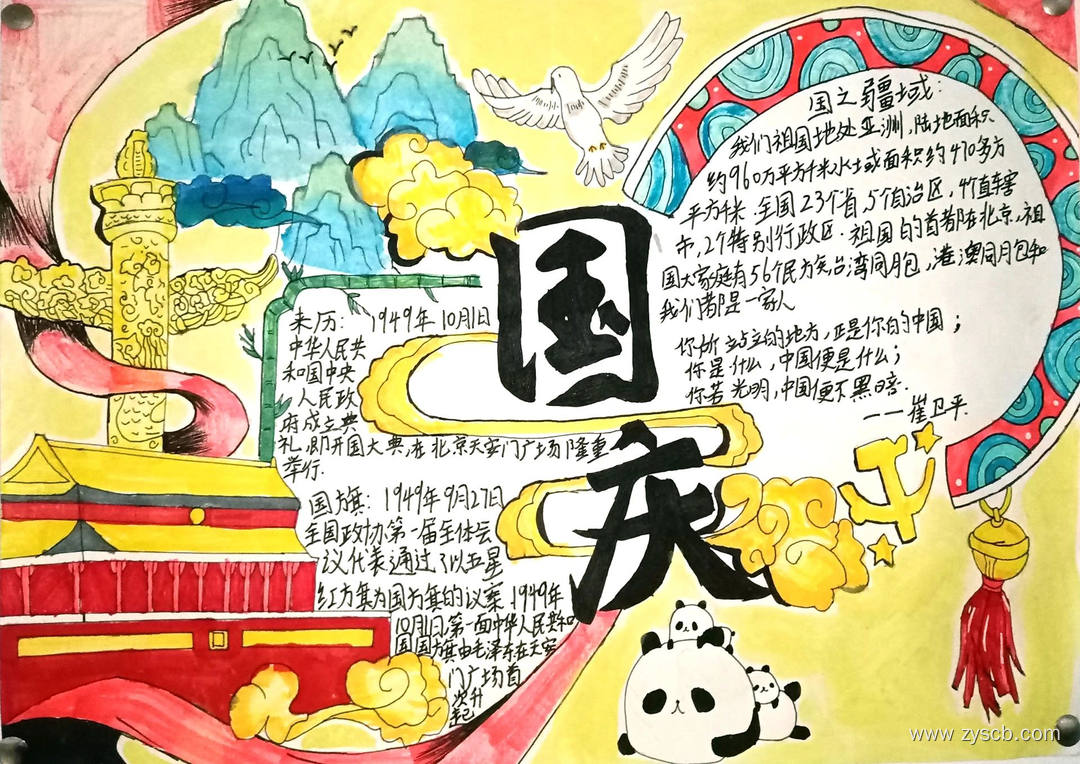 国庆
来历: 1949年10月1日
中华人民共
和国中央
人民政
府成立典
礼,即开国大典,在北京天安门广场隆重
举行.
国旗: 1949年9月27日
全国政协第一届全体会
议代表通过了以五星
红旗为国旗的议案1949年
10月1日,第一面中华人民共和
国国旗由毛泽东在天安
门广场首
次升
起
国之疆域:
我们祖国地处亚洲,陆地面积
约960万平方千米水土或面积约470多方
平方千米.全国23个省,5个自治区,4个直辖
市,2个特别行政区.祖国的首都在北京,祖
国大家庭有56个民族台湾同胞,港澳同胞和
我们都是一家人
你所站立的地方,正是你的中国;
你是什么,中国便是什么;
你若光明,中国便不黑暗.
——崔卫平
www.zyscb.com